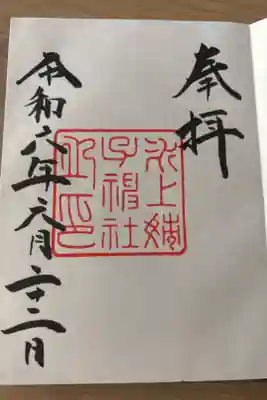 奉拝
氷上姉
子神社
之印
令和六年六月二十二日